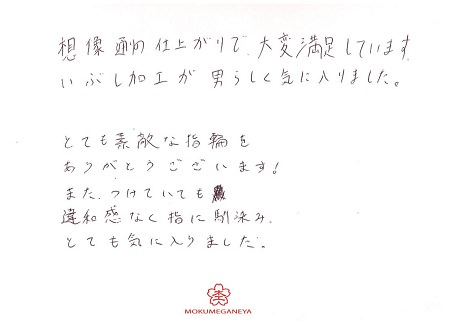 想像通りの仕上がりで、大変満足しています。
いぶし加工が男らしく気に入りました。
とても素敵な指輪を
ありがとうございます!
また、つけていても
違和感なく指に馴染み、
とても気に入りました。
MOKUMEGANEYA